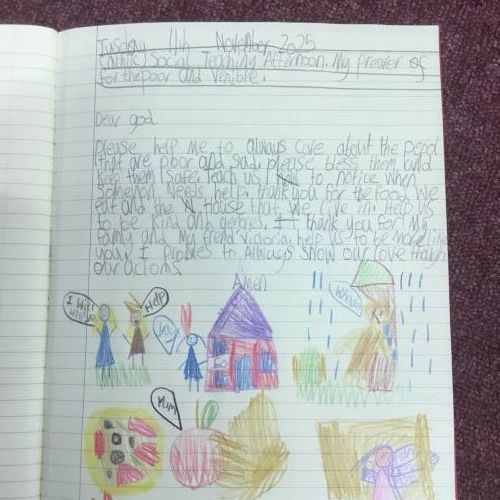 Tusday 11th November 2025
Cathlic Social Teaching Afternoon. My preaer of
for the poor and Venible.
Dear god
please help me to always care about the pepol
that are poor and sad, please bless them and
keep them safe. teach us to notice when
someone needs help. thank you for the food we
eat and the House that we live in. Help us
to be kind and gerbes. I thank you for my
family and my frend vigoria, help us to be more like
you, I promes to Always show our love though
our actoins.
Amen
I Will
Help
Yay
Whoosh
Yum